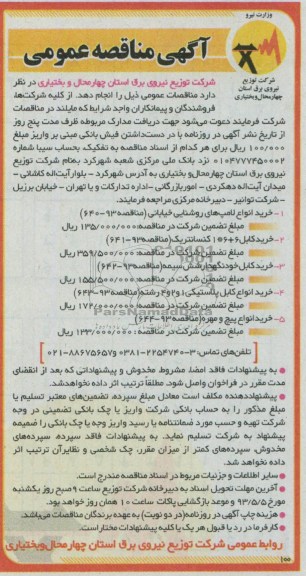 وزارت نیرو
شرکت توزیع
نیروی برق استان
چهارمحال وبختیاری
آگهی مناقصه عمومی
شرکت توزیع نیروی برق استان چهارمحال و بختیاری در نظر
دارد مناقصات عمومی ذیل را انجام دهد. از کلیه شرکت‌ها،
فروشندگان و پیمانکاران واجد شرایط که مایلند در مناقصات
شرکت فرمایند دعوت می‌شود جهت دریافت مدارک مربوطه ظرف مدت پنج روز
از تاریخ نشر آگهی در روزنامه با در دست‌داشتن فیش بانکی مبنی بر واریز مبلغ
۱۰۰/۰۰۰ ریال برای هر کدام از اسناد مناقصه به تفکیک بحساب سیبا شماره
۰۱۰۴۷۷۷۴۵۰۰۰۲ نزد بانک ملی مرکزی شعبه شهرکرد به‌نام شرکت توزیع
نیروی برق استان چهارمحال و بختیاری به آدرس شهرکرد - بلوار آیت‌اله کاشانی -
میدان آیت‌اله دهکردی - امور بازرگانی - اداره تدارکات و یا تهران - خیابان برزیل
- شرکت توانیر - دبیرخانه مرکزی مراجعه فرمایند.
۱- خرید انواع لامپ‌های روشنایی خیابانی (مناقصه ۹۳-۶۴۰)
مبلغ تضمین شرکت در مناقصه: ۱۳۵/۰۰۰/۰۰۰ ریال
۲- خرید کابل ۶+۱۶ کنسانتریک (مناقصه ۹۳-۶۴۱)
مبلغ تضمین شرکت در مناقصه: ۳۵۹/۵۰۰/۰۰۰ ریال
۳- خرید کابل خودنگهدار شش سیمه (مناقصه ۹۳-۶۴۲)
مبلغ تضمین شرکت در مناقصه: ۱۵۵/۵۰۰/۰۰۰ ریال
۴- خرید انواع کابل پلاستیکی ۱و۲و۴ رشته (مناقصه ۹۳-۶۴۳)
مبلغ تضمین شرکت در مناقصه: ۱۷۲/۰۰۰/۰۰۰ ریال
۵- خرید انواع پیچ و مهره (مناقصه ۹۳-۶۴۴)
مبلغ تضمین شرکت در مناقصه: ۱۳۳/۰۰۰/۰۰۰ ریال
ParsNamadData
تلفن‌های تماس: ۳-۲۲۵۴۷۴۰-۰۳۸۱ ۰۲۱-۸۸۶۷۵۶۵۷۹
به پیشنهادات فاقد امضا، مشروط، مخدوش و پیشنهاداتی که بعد از انقضای
مدت مقرر در فراخوان واصل شود، مطلقاً ترتیب اثر داده نخواهدشد.
پیشنهاددهنده مکلف است معادل مبلغ سپرده، تضمین‌های معتبر تسلیم یا
مبلغ مذکور را به حساب بانکی شرکت واریز یا چک بانکی تضمینی در وجه
شرکت تهیه و حسب مورد ضمانتنامه یا رسید واریز وجه یا چک بانکی را ضمیمه
پیشنهاد به شرکت تسلیم نماید. به پیشنهادات فاقد سپرده، سپرده‌های
مخدوش، سپرده‌های کمتر از میزان مقرر، چک شخصی و نظایر آن ترتیب اثر
داده نخواهد شد.
سایر اطلاعات و جزئیات مربوط در اسناد مناقصه مندرج است.
آخرین مهلت تحویل اسناد به دبیرخانه شرکت توزیع ساعت ۹ صبح روز یکشنبه
مورخ ۹۳/۵/۵ و موعد بازگشایی پاکت ساعت ۱۰ همان روز خواهد بود.
هزینه چاپ آگهی در روزنامه (در دو نوبت) به عهده برندگان مناقصات می‌باشد.
کارفرما در رد یا قبول هر یک یا کلیه پیشنهادات مختار است.
روابط عمومی شرکت توزیع نیروی برق استان چهارمحال‌وبختیاری